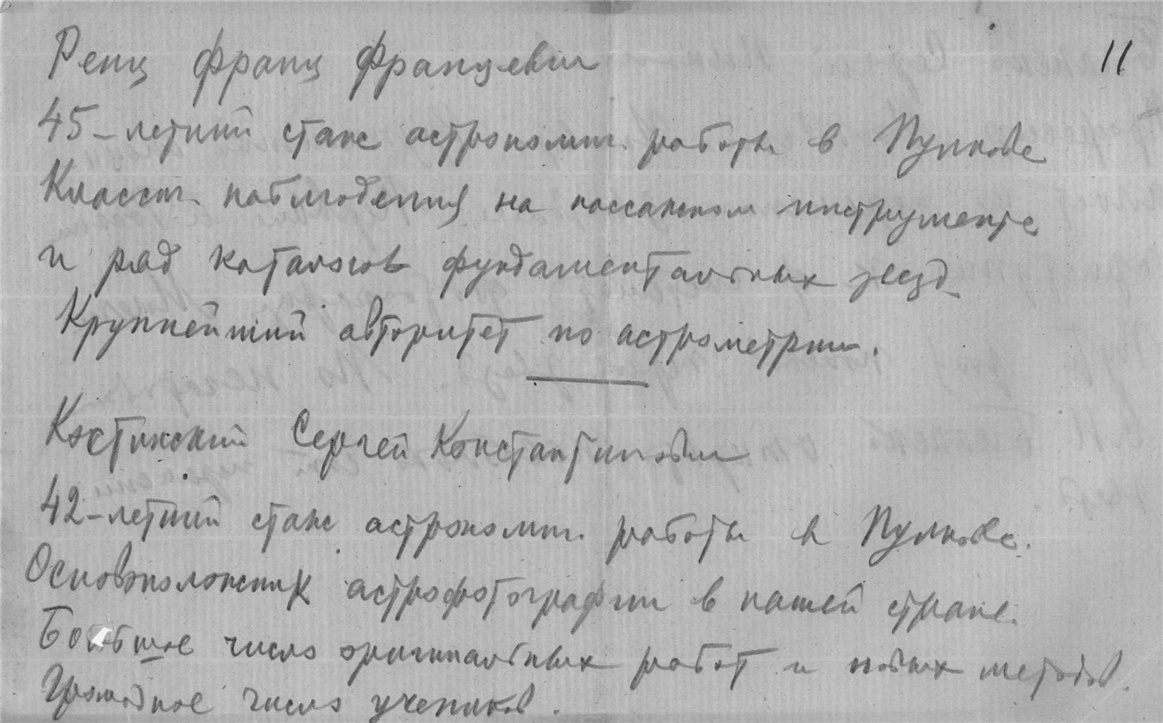 11
Ренц Франц Францевич
45-летний стаж астрономич. работы в Пулкове
Классич. наблюдения на пассажном инструменте
и ряд каталогов фундаментальных звезд
Крупнейший авторитет по астрометрии.
Костинский Сергей Константинович
42-летний стаж астрономич. работы в Пулкове.
Основоположник астрофотографии в нашей стране.
Большое число оригинальных работ и новых методов.
Громадное число учеников.